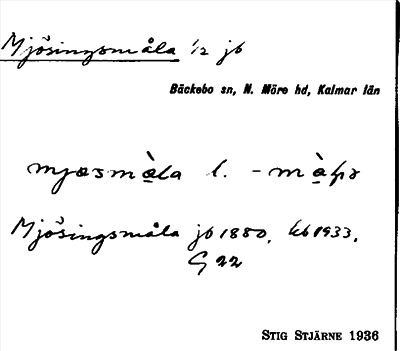 Mjösingsmåla 1/2 jb
Bäckebo sn, N. Möre hd, Kalmar län
mjøsmå̀la l. -
Mjösingsmåla jb 1880, kb 1933,
G 22
STIG STJÄRNE 1936